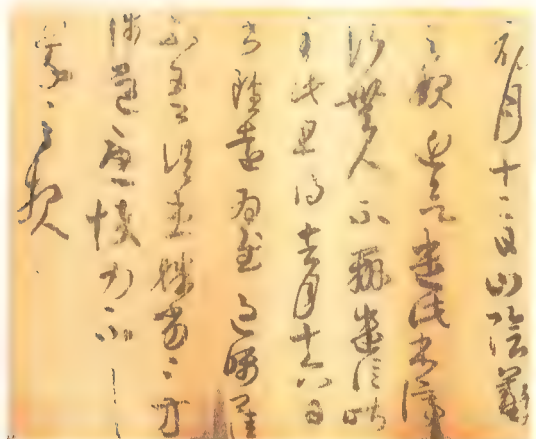 初月十二日山陰羲
之報近欲遣此書停
行無人不辦遣信昨
至此且得去月十六日
書雖遠為慰過囑卿
佳不吾諸患殊劣殊劣方
涉道憂悴力不具
羲之報